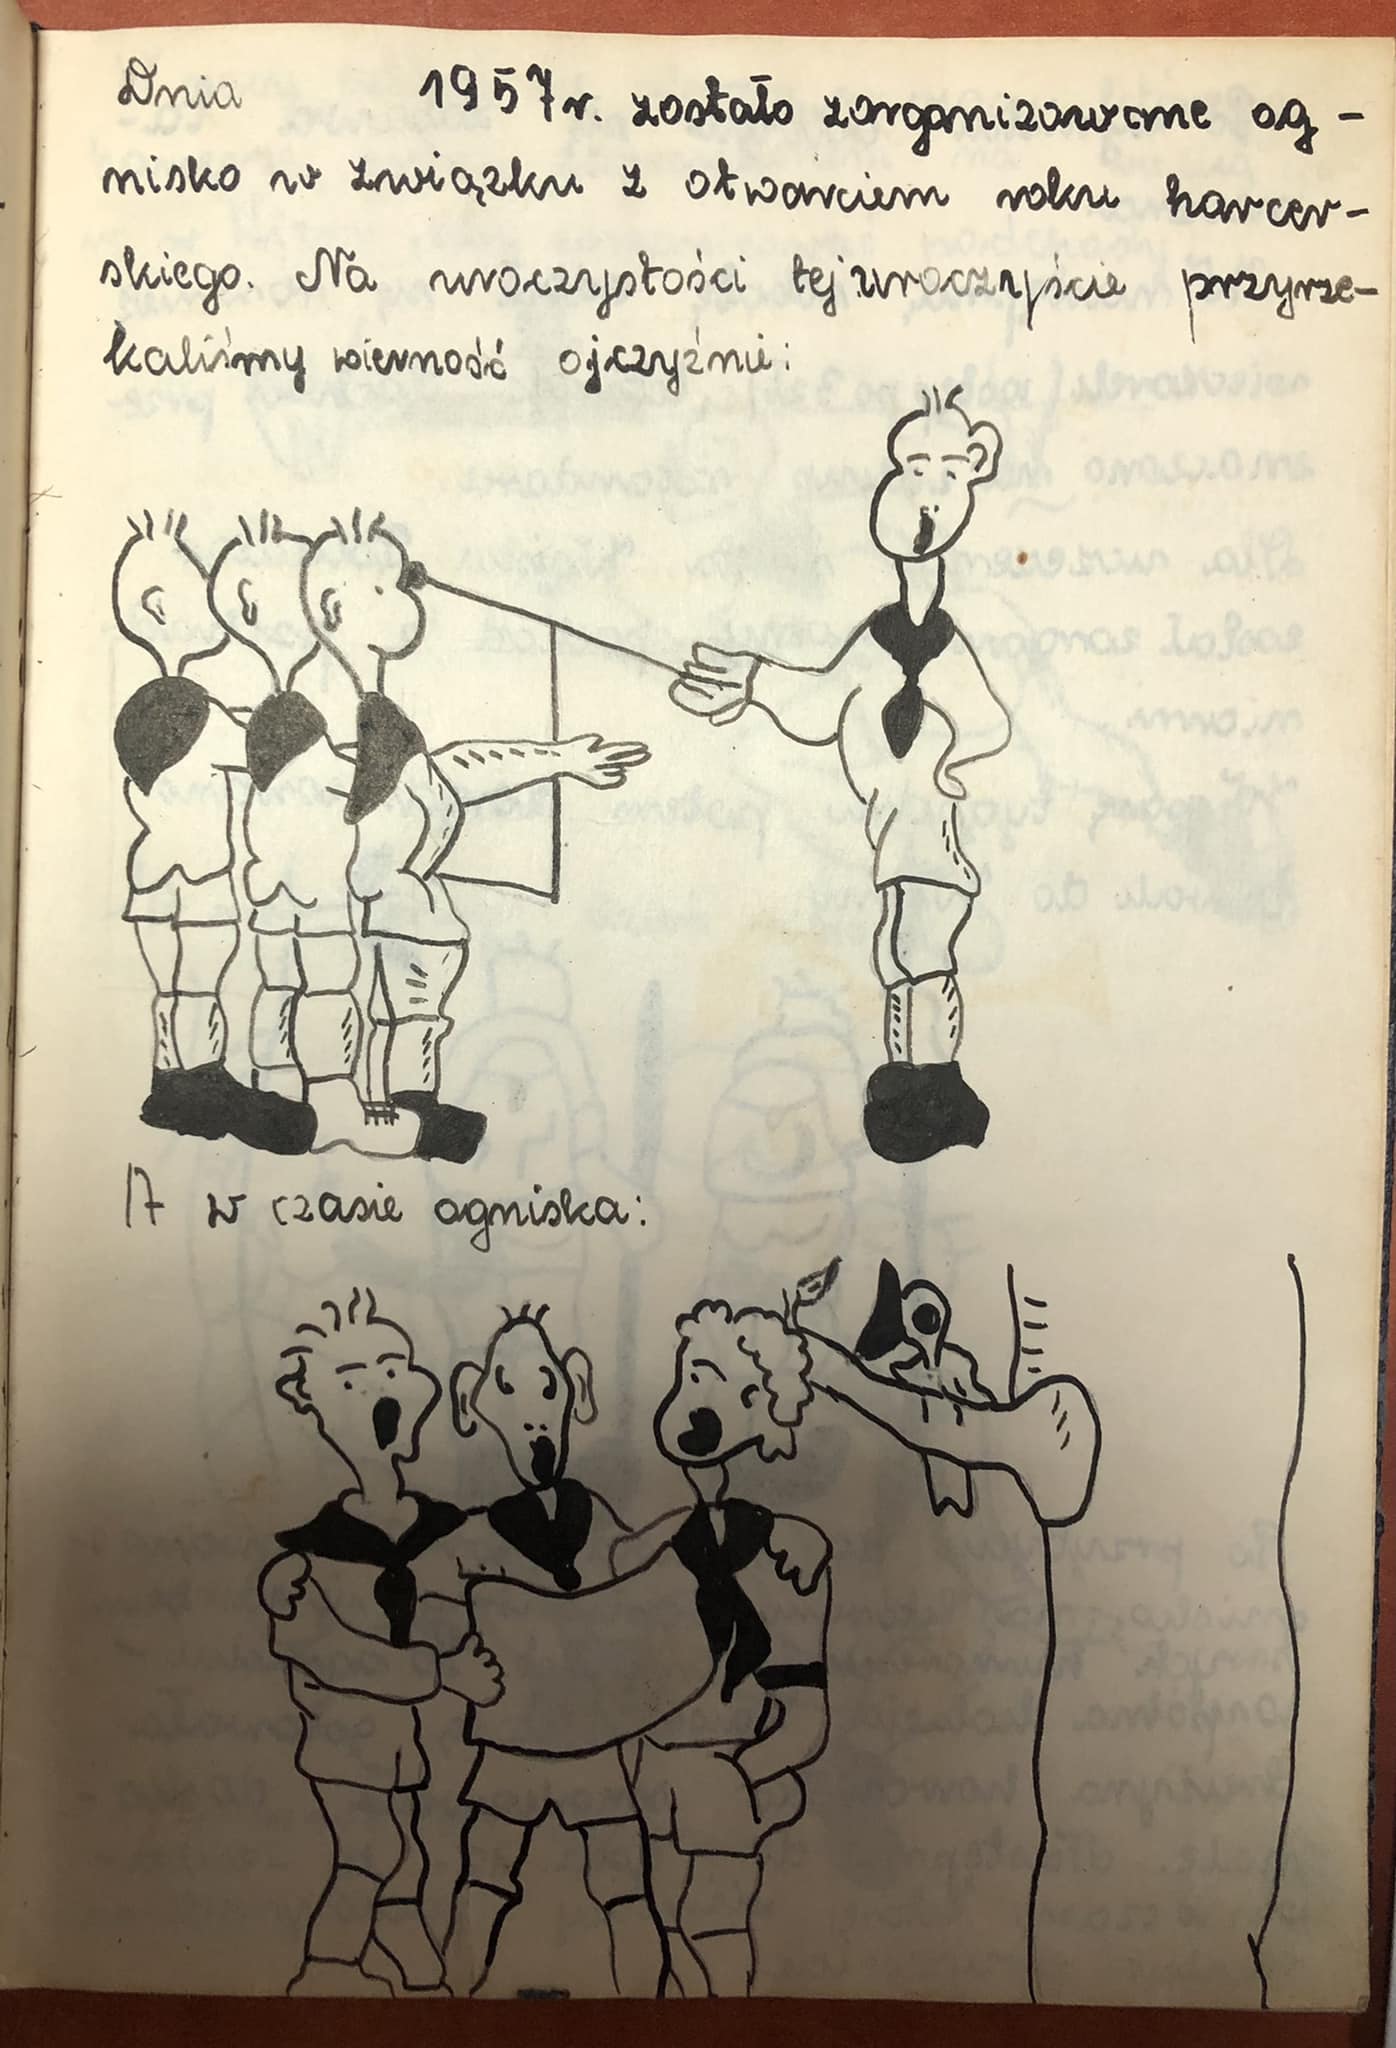 Dnia 1957 r. zostało zorganizowane og-
nisko w związku z otwarciem roku harcer-
skiego. Na uroczystości tej uroczyście przyrze-
kaliśmy wierność ojczyźnie:
A w czasie ogniska: